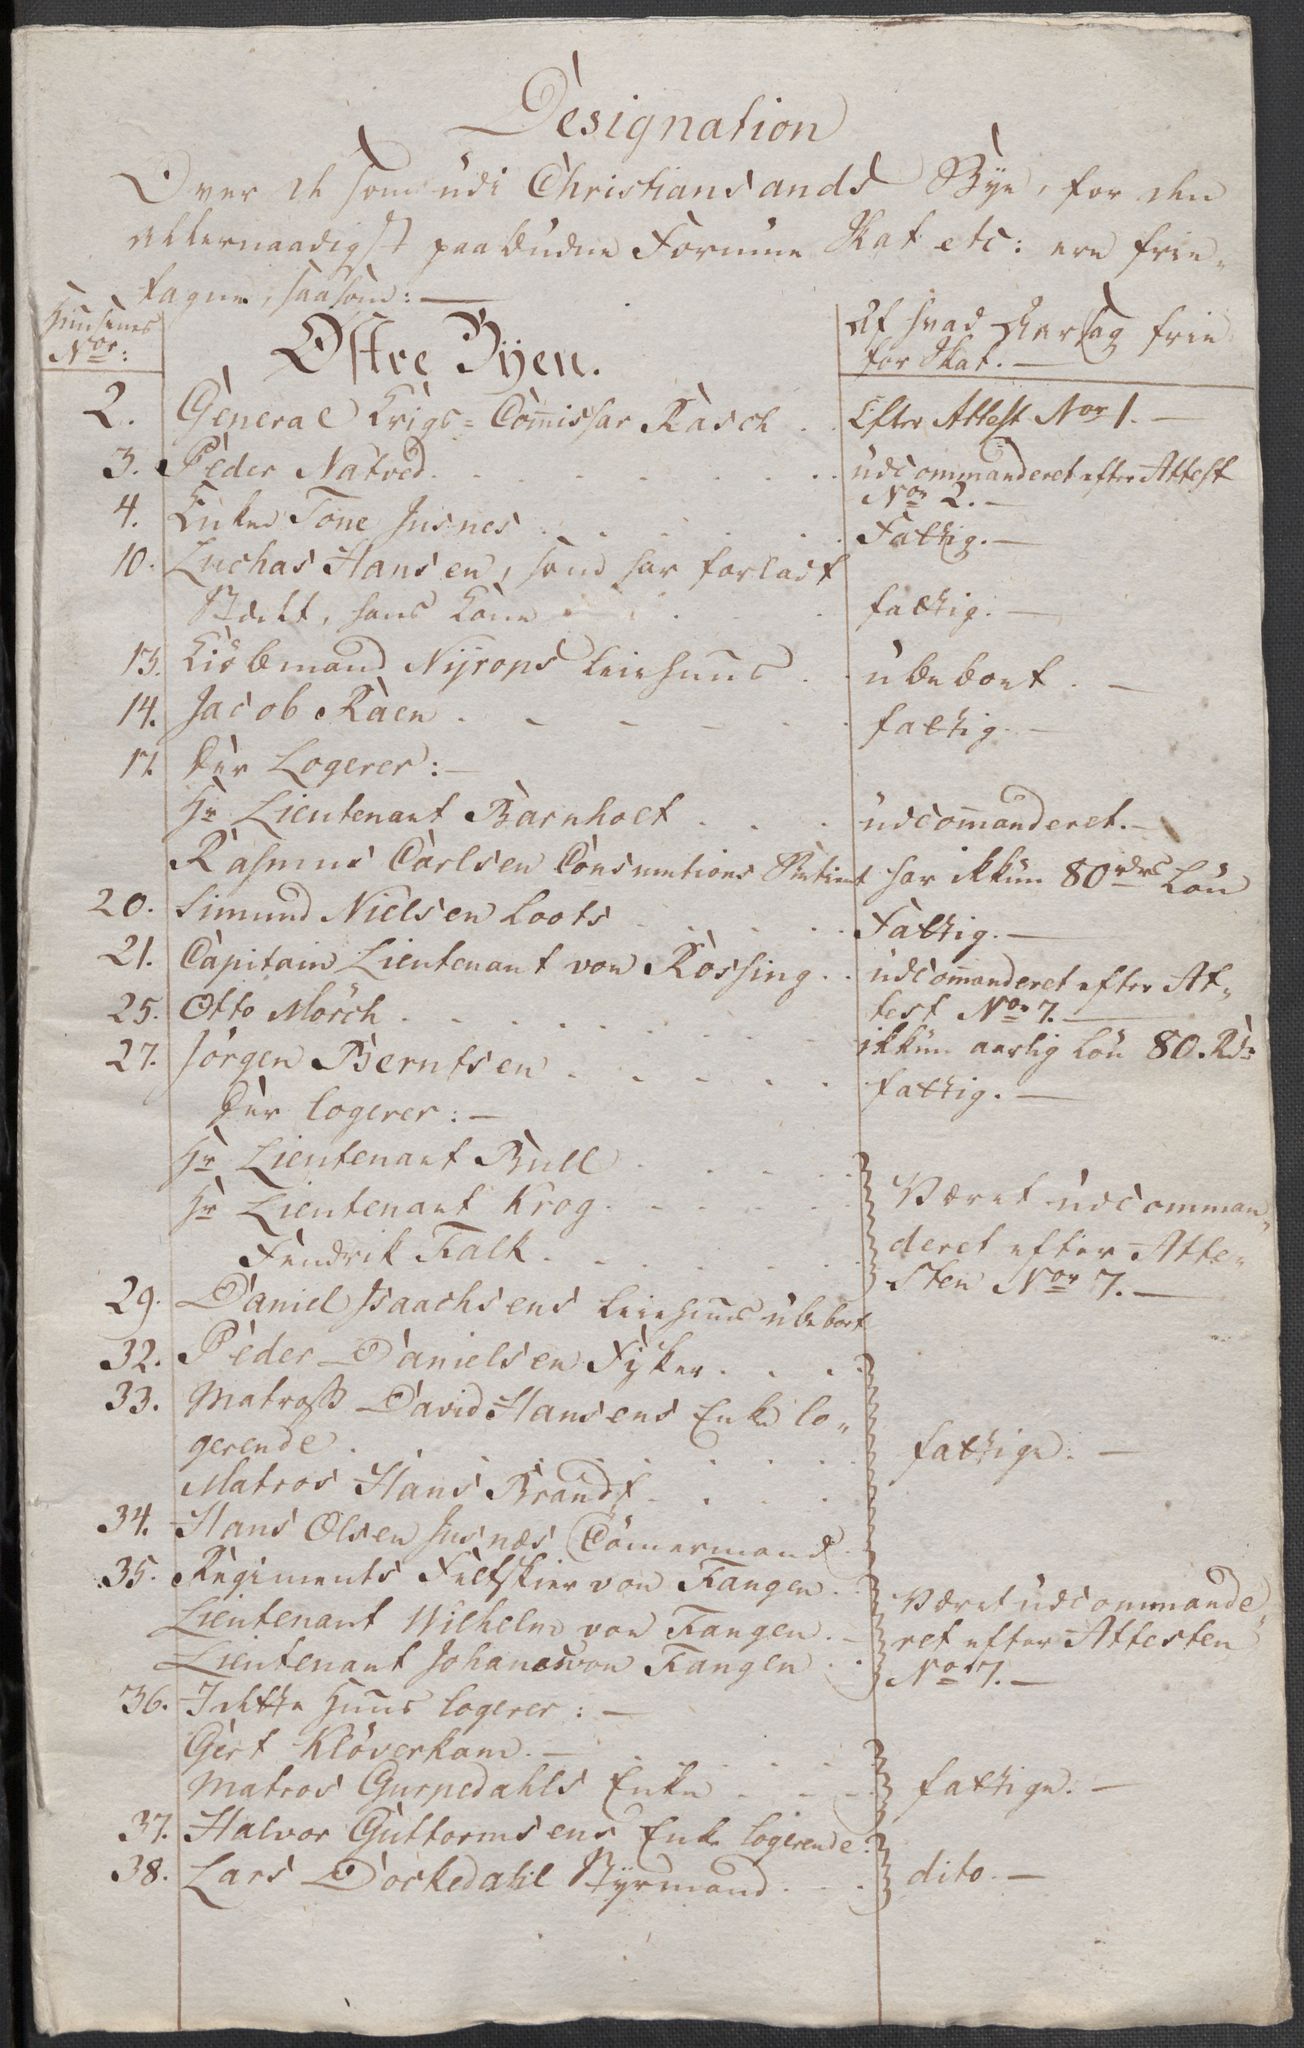 Designation
Over de som udi Christiansands Bye, for den
allernaadigst paabudne Formue Skat etc: ere frie-
tagne, saasom: —
Huusenes
No:
Østre Byen.
Af hvad Aarsag frie
for Skat. —
2. General Krigs-Commissar Rasch . . Efter Attest Nor 1. —
3. Peder Natved . . . udcommanderet efter Attest
Nor 2. —
4. Enken Tone Jusnes . . . Fattig. —
10. Luchas Hansen, som har forladt
Stædet, hans Kone . . . fattig. —
13. Kiøbmand Nyrops leiehuus . . ubeboet. —
14. Jacob Raen . . . fattig. —
17. Der Logerer: —
Hr Lieutenant Barnholt . . . udcommanderet. —
Rasmus Carlsen Consumtions Betient har ikkun 80 rdrs Løn
20. Simund Nielsen Loots . . . Fattig. —
21. Capitain Lieutenant von Røssing . . udcommanderet efter At-
test Nor 7. —
25. Otto Mörch . . . ikkun aarlig Løn 80 Rdr
27. Jørgen Berntsen . . . fattig. —
Der logerer: —
Hr Lieutenant Bull . . .
Hr Lieutenant Krog . . . Været udcomman-
Fendrik Falk . . . deret efter Atte-
sten Nor 7. —
29. Daniel Isaachsens leiehuus ubeboet
32. Peder Danielsen Fyker . . .
33. Matross David Hansens Enke lo-
gerende . . . fattige. —
Matros Hans Brandt . . .
34. Hans Olsen Jusnæs Tømermand
35. Regiments Feltskier von Fangen . Været udcommande-
Lieutenant Wilhelm von Fangen . ret efter Attesten
Lieutenant Johan von Fangen . . No 7. —
36. I dette Huus logerer: —
Gert Kløverkam. —
Matros Gurpedahls Enke . . . fattige. —
37. Halvor Guttormsens Enke logerende.
38. Lars Dockedahl Styrmand . . . dito. —